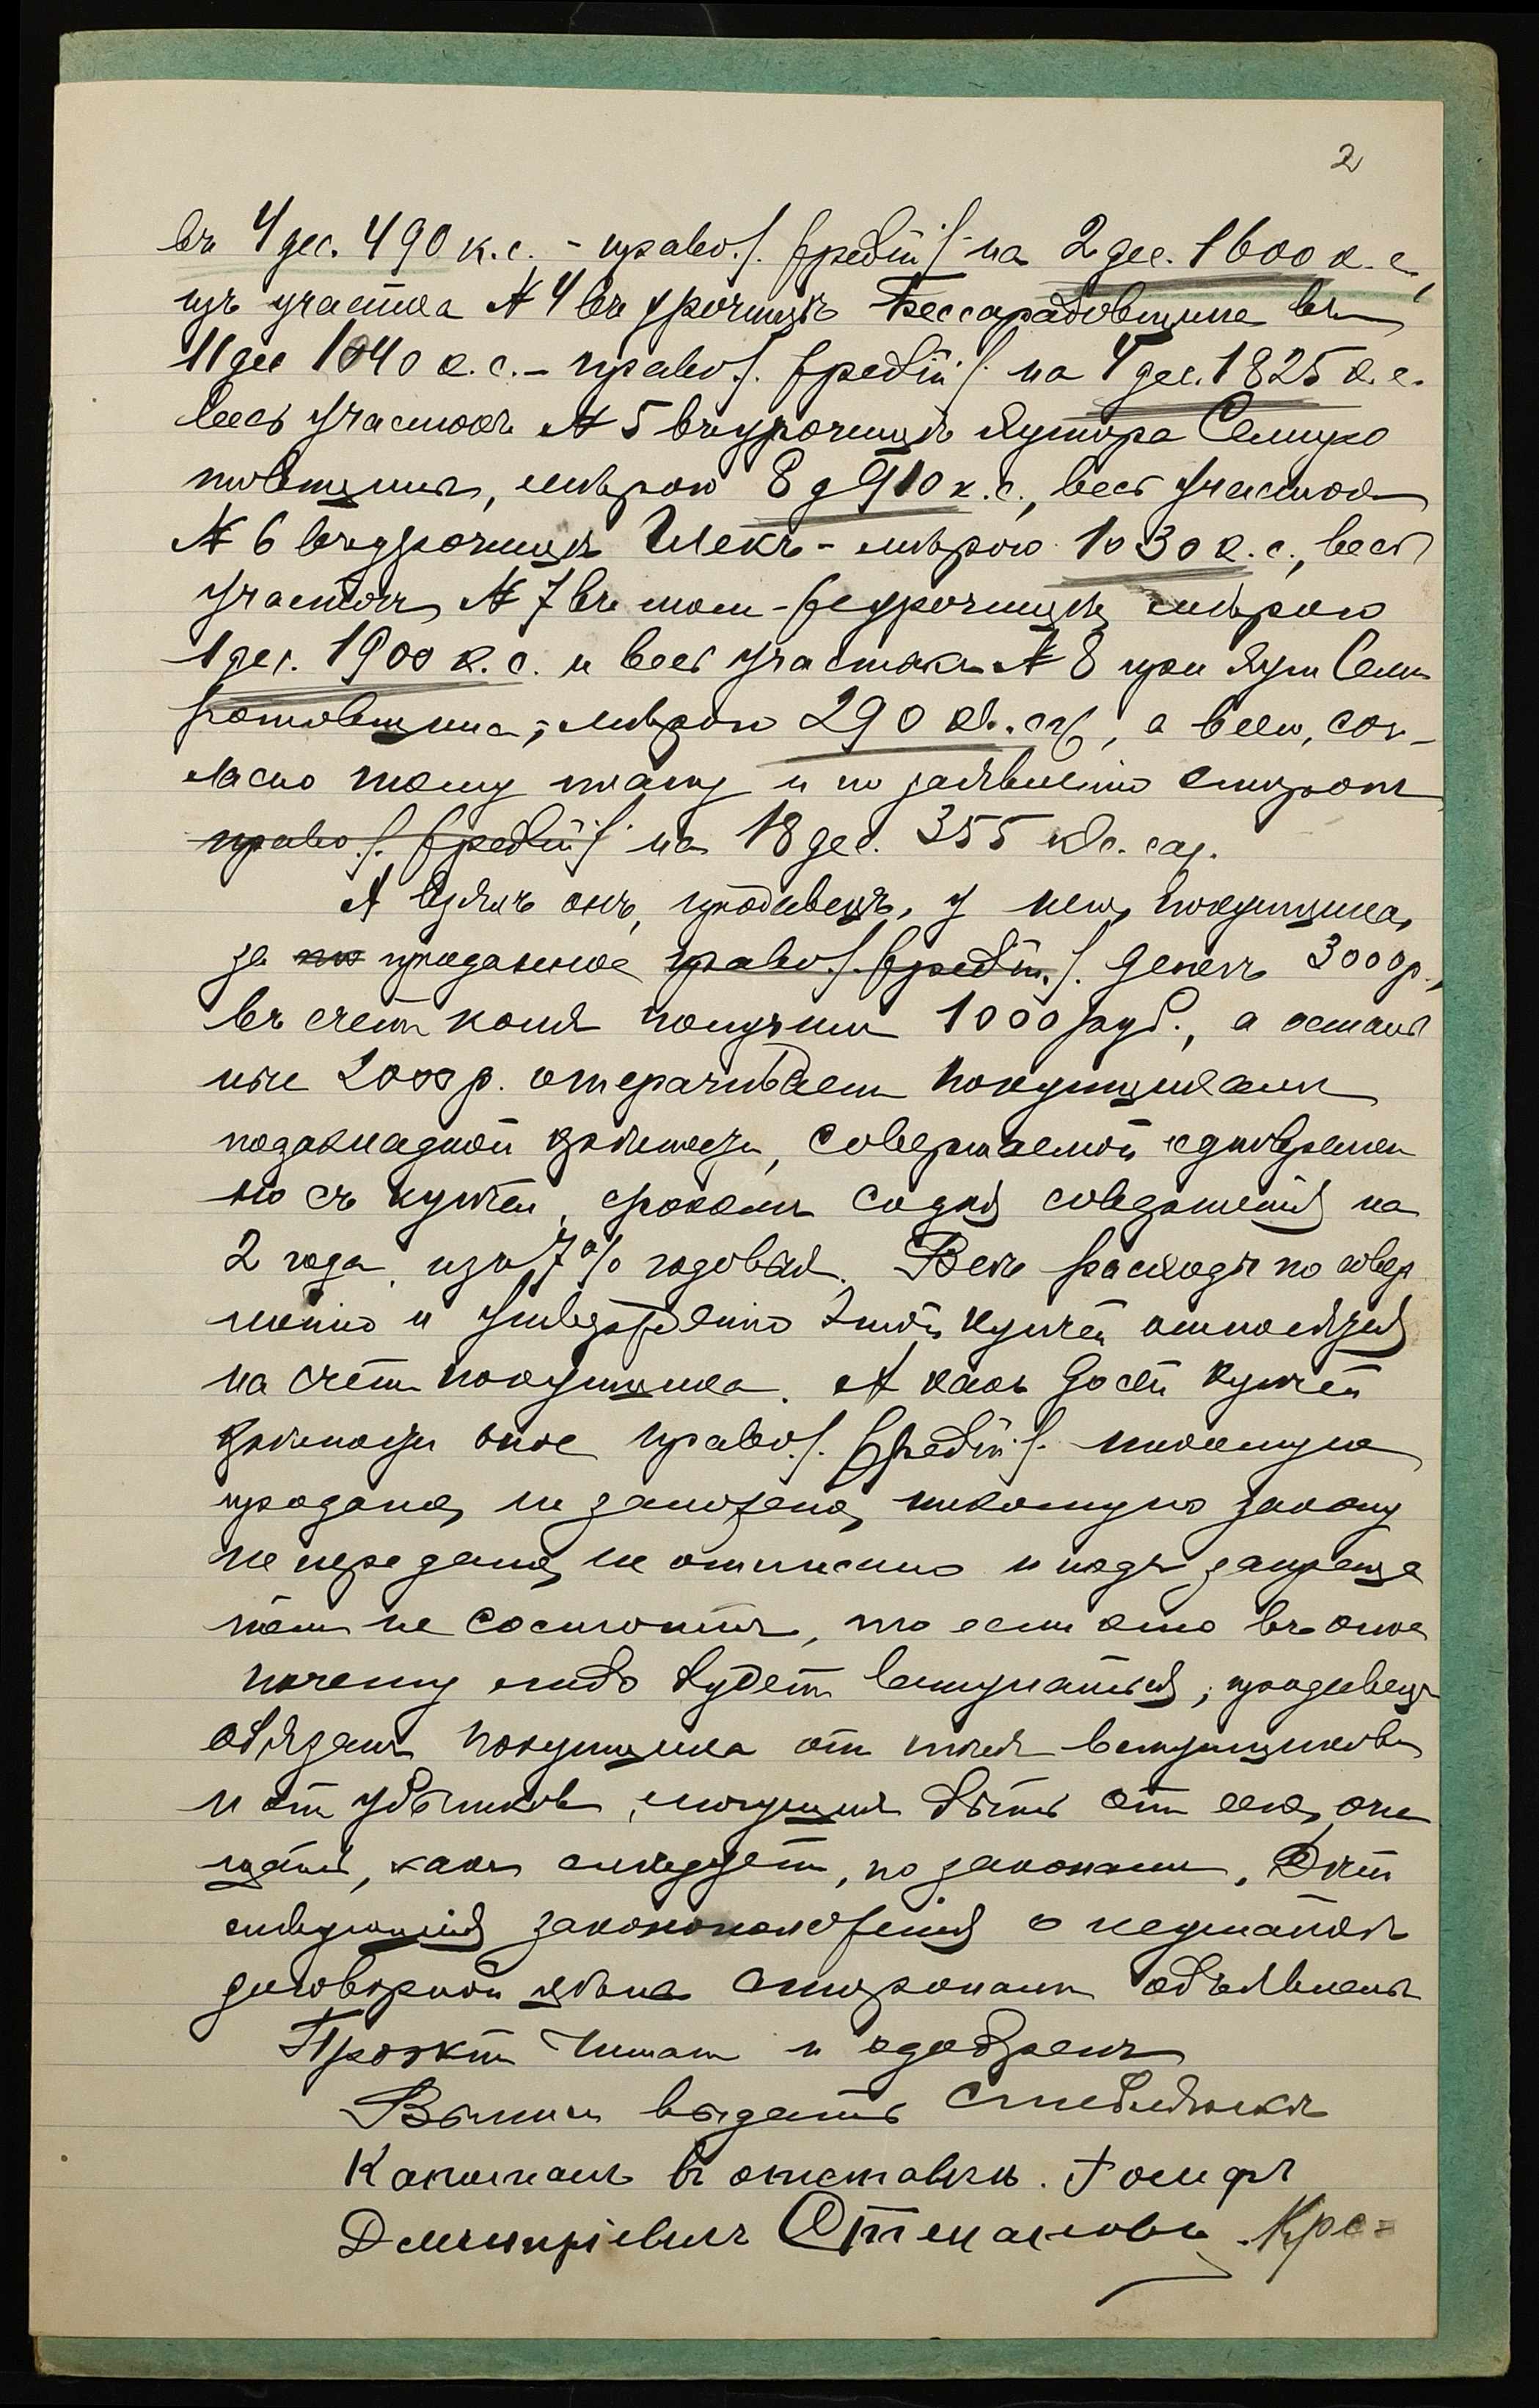 2
въ 4 дес. 490 к.с. - право . жребій на 2 дес. 1600 к.с.,
изъ участка № 4 въ урочищѣ Бессарабовщина въ
11 дес 1040 к.с. - право . жребій на 4 дес. 1825 к.с.
весь участокъ № 5 въ урочищѣ хутора
мѣрою 8 д 910 к.с., весь участокъ
№ 6 въ урочищѣ - мѣрою 1030 к.с., весь
участокъ № 7 въ томъ-же урочищѣ мѣрою
1 дес. 1900 к.с. и весь участокъ № 8 при хут
мѣрою 290 кв. саж, а всего, сог-
ласно тому плану и по заявленію сторонъ
право . жребій на 18 дес. 355 кв. саж.
А взялъ онъ, продавецъ, у него, покупщика,
за по проданное право . жребій . денегъ 3000 р.,
въ счетъ коихъ получилъ 1000 руб., а осталь
ные 2000 р. отсрачиваетъ покупщикамъ
по закладной крѣпости, совершаемой одновремен
но съ купчей, срокомъ со дня совершенія на
2 года изъ 7% годовыхъ. Всѣ расходы по совер
шенію и утвержденію этой купчей относятся
на счетъ покупщика. А какъ до сей купчей
крѣпости оное право . жребій . никому не
продано, не заложено, никому по закону
не передано, не отписано и подъ запреще
ніемъ не состоитъ, то если кто въ оное
почему либо будетъ вступаться, продавецъ
обязанъ покупщика отъ тѣхъ вступщиковъ
и отъ убытковъ, могущихъ быть отъ сего, очи
щать, какъ слѣдуетъ, по законамъ.
слѣдующія законоположенія о неуматой
договорной цѣнѣ сторонамъ объявлены
Проэктъ читалъ и одобренъ
Выпись выдать
Капитанъ въ отставкѣ. Іосифъ
Дмитріевичъ Степановъ. Кре=